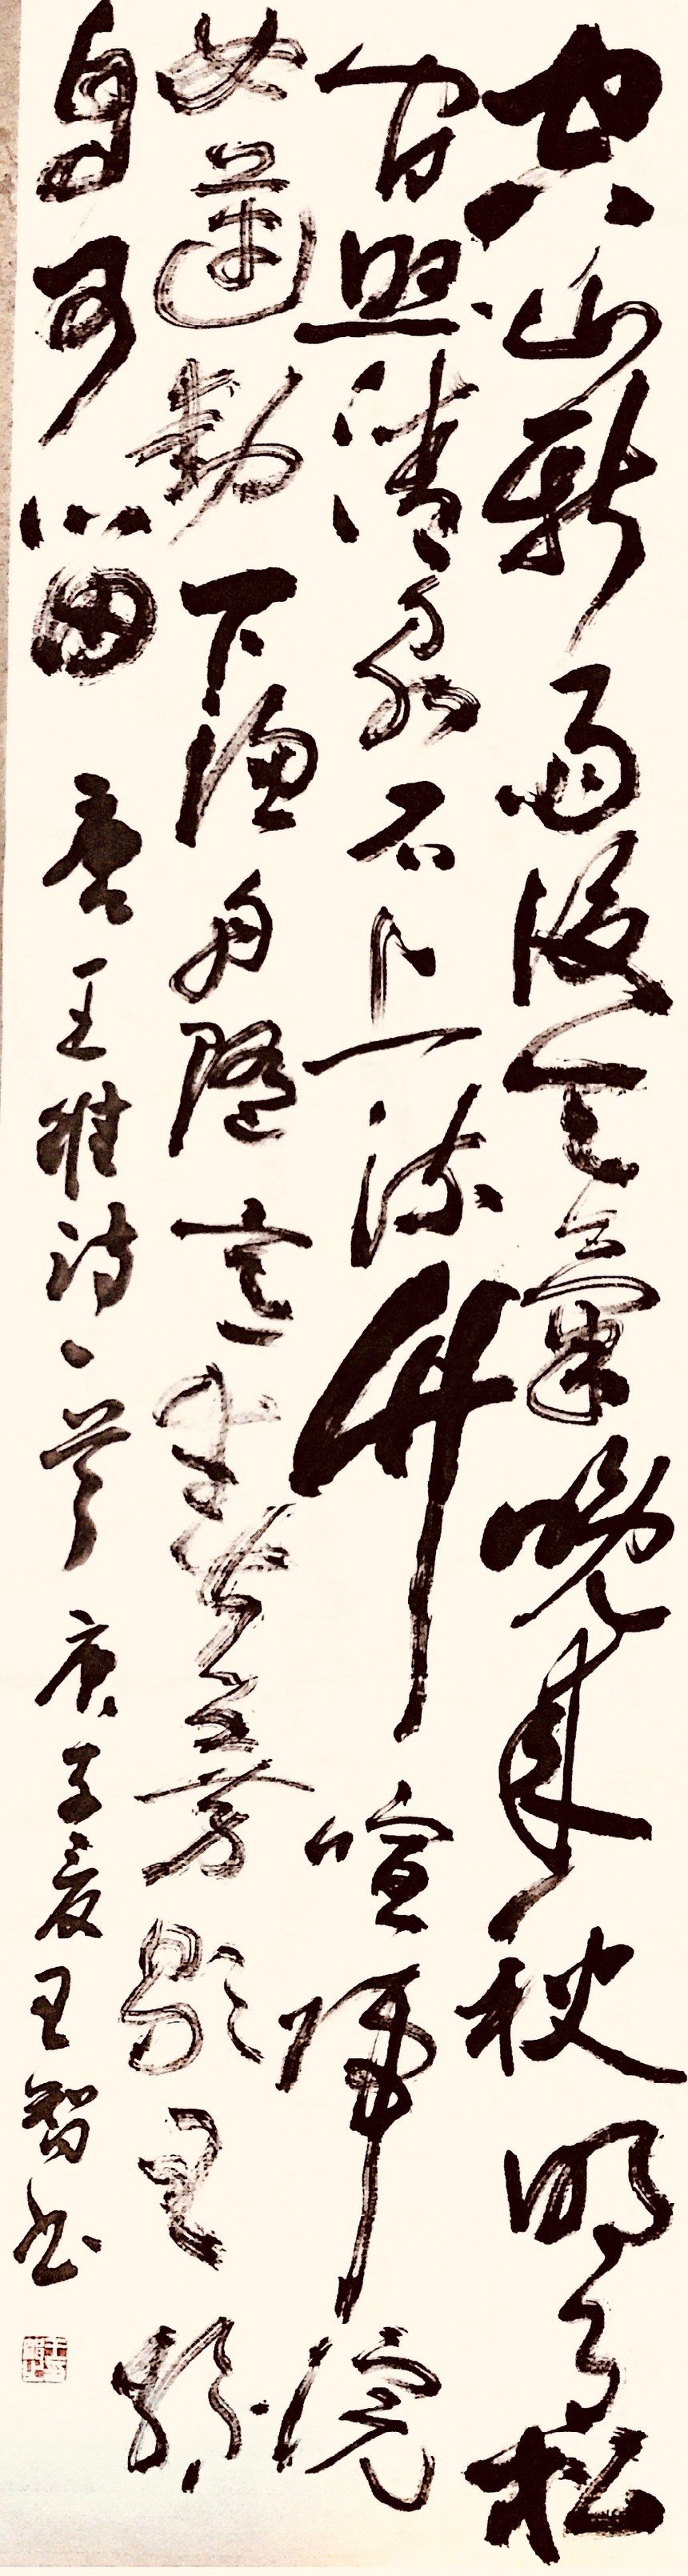 空山新雨後天氣晚來秋明月松
間照清泉石上流竹喧歸浣
女蓮動下漁舟隨意春芳歇王孫
自可留 唐王維詩一首 庚子夏王智书